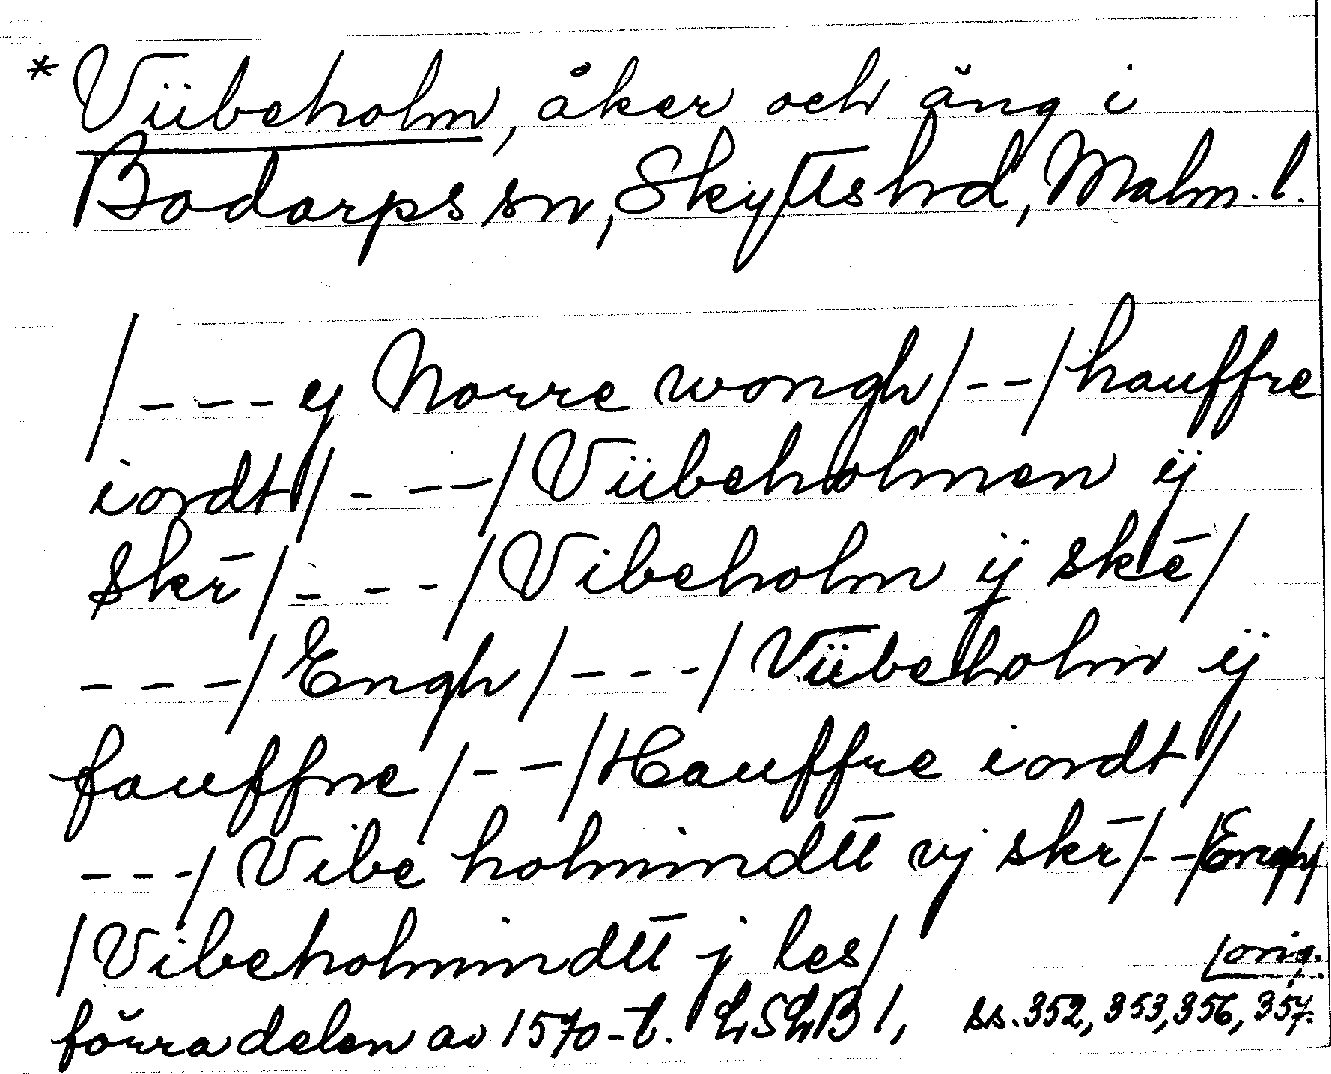 * Viibeholm, åker och äng i
Bodarps sn, Skytts hd, Malm. l.
/ - - - ej Norre wongh / - - / hauffre
iordt / - - - / Viibeholmen ij
skr̄ / - - - / Vibeholm ij skē /
- - - / Engh / - - - / Viibeholm ij
fauffne / - - / Hauffre iordt /
- - - / Vibe holmindtt vj skr̄ / - - / Engh /
/ Vibeholmindtt j les /
förra delen av 1570-t. LSLB 1, ss. 352, 353, 356, 357.
/orig.